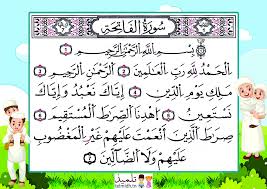 سورة الفاتحة
بِسْمِ اللَّهِ الرَّحْمَٰنِ الرَّحِيمِ ١
الْحَمْدُ لِلَّهِ رَبِّ الْعَالَمِينَ ٢ الرَّحْمَٰنِ الرَّحِيمِ ٣
مَالِكِ يَوْمِ الدِّينِ ٤ إِيَّاكَ نَعْبُدُ وَإِيَّاكَ
نَسْتَعِينُ ٥ اهْدِنَا الصِّرَاطَ الْمُسْتَقِيمَ ٦
صِرَاطَ الَّذِينَ أَنْعَمْتَ عَلَيْهِمْ غَيْرِ الْمَغْضُوبِ
عَلَيْهِمْ وَلَا الضَّالِّينَ ٧
تلميذ